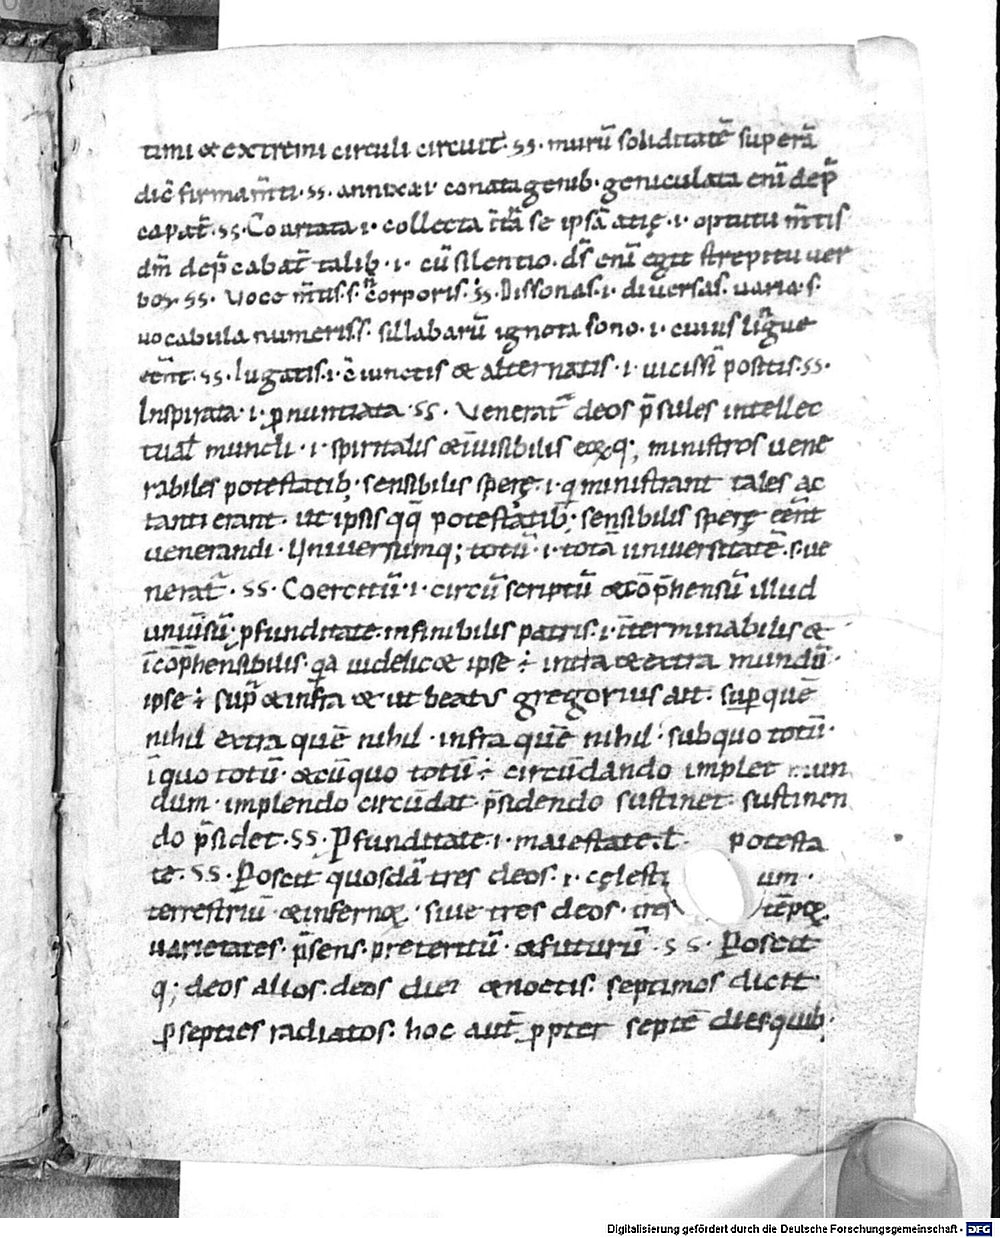 timi & extremi circuli circuit· ss· murũ soliditatẽ superã
dic̃ firmam̃ti· ss· annixa· i· conata genib· geniculata enĩ dep̃
capat̃· ss· Coartata· i· collecta t̃tã se ipsã atię· i· optutu m̃tis
dm̃ dep̃cabat̃ talib; · i· cũ silentio· ds̃ enĩ egit strepitu uer
boꝝ· ss· Voce m̃tis· s· ñ corporis· ss· Dissonas· i· diuersas· uaria· s·
uocabula numeris· s· sillabarũ ignota sono· i· cuius lingue
eẽnt· ss· Iugatis· i· c̃iunctis & alternatis· i· uicissĩ positis· ss·
Inspirata· i· ꝓnuntiata· ss· Venerat̃ deos p̃sules intellec
tual̃ mundi· i· spiritalis &ĩuisibilis eoꝝq; ministros uene
rabiles potestatib; · sensibilis sperę· i· q̇ ministrant tales ac
tanti erant· ut ipsis qq̃ potestatib; · sensibilis sperę eẽnt
uenerandi· Vniuersumq; totũ· i· totã uniuersitatẽ· s· ue
nerat̃· ss· Coercitũ· i· circũscriptũ &cõp̃hensũ illud
uniũsũ· ꝓfunditate· infinibilis patris· i· ĩterminabilis &
ĩcõp̃hensibilis· qa uidelic& ipse ÷ intra &extra mundũ·
ipse ÷ sup̃ &infra & ut beatus gregorius ait· suꝑ quẽ
nihil extra quẽ nihil· infra quẽ nihil· sub quo totũ·
ĩ quo totũ· &cũ quo totũ ÷ circũdando implet mun
dum· implendo circũdat· p̃sidendo sustinet· sustinen
do p̃sidet· ss· Ꝓfunditate· i· maiestate· ł potesta
te· ss· Poscit quosdã tres deos· i· cęlesti um·
terrestriũ &infernoꝝ· siue tres deos· tres tẽpoꝝ
uarietates· p̃sens· preteritũ· &futurũ· ss· Poscit
q; deos alios· deos diei &noctis· septimos dicit
ꝑ septies radiatos· hoc aut̃ ꝓpter septẽ dies quib; ·
Digitalisierung gefördert durch die Deutsche Forschungsgemeinschaft - DFG